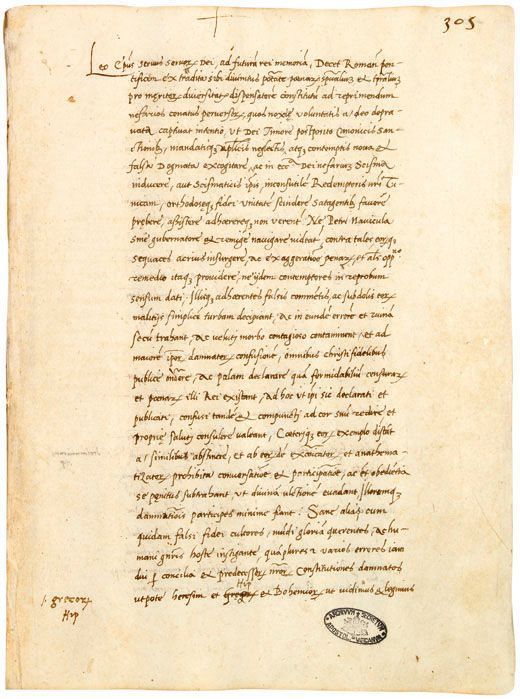 305
Leo Ep̄us servus servor̨ Dei, ad futurā rei memoriā, Decet Romanū pon-
tificem ex tradita sibi divinitus pōtate poenar̨ spūalium et tp̄alium
pro meritor̨ diversitate dispensatore constitutū ad reprimendum
nefarios conatus perversor̨, quos noxie voluntatis a deo depra-
vata captivat intentio, ut Dei timore postposito canonicis san-
ctionib; mandatisq; ap̄licis neglectis, atq; contemptis nova et
falsa Dogmata excogitare, ac in ecc̄a Dei nefariū Scisma
inducere, aut Scismaticis ip̄is, inconsutilē Redemptoris nr̄i Tu-
nicam, orthodoxeq; fidei unitatē scindere satagentib; favorē
prębere, assistere adhęrereq; non verent̄ Ne Petri Navicula
sine gubernatore et remige navigare videat̄, contra tales eorq;
sequaces acrius insurgere, ac exaggeratione penar̨, et als opp.no
remedio itaq; providere, ne ijdem contemptores in reprobum
sensum dati, Illisq; adhęrentes falsis commentis, ac subdolis eor̨
malitijs simplicē turbam decipiant, ac in eundē errorē et ruinā
secū trahant, ac veluti morbo contagioso contaminent, et ad
maiorē ip̄or̨ damnator̨ confusionē, omnibus christi fidelibus
publice on̄dere, ac palam declarare quā formidabiliū censurar̨
et poenar̨ illi Rei existant, Ad hoc ut ipsi sic declarati et
publicati, confusi tandē et compuncti ad cor suū redire et
proprię saluti consulere valeant, Coeteriq; eor̨ exemplo discant
a similibus abstinere, et ab eor̨ de excōicator̨ et anathema-
tizator̨ prohibita conversatione et participatione, ac et obedientia
se penitus subtrahant ut divinā ultionē evadant Illorumq;
damnationis participes minime fiant: Sane alias cum
quidam falsi fidei cultores, mūdi gloriā querentes, ac hu-
mani gn̄ris hoste instigante, quāplures et varios errores iam
diu p̄ concilia et predecessor̨ nr̄or̨ Constitutiones damnatos
utpote heresim et gregor̨ et Bohemor̨, ut vidimus et legimus
Hip
/. grecor̨
Hip
ARCHIVUM SECRETUM APOSTOL. VATICANUM